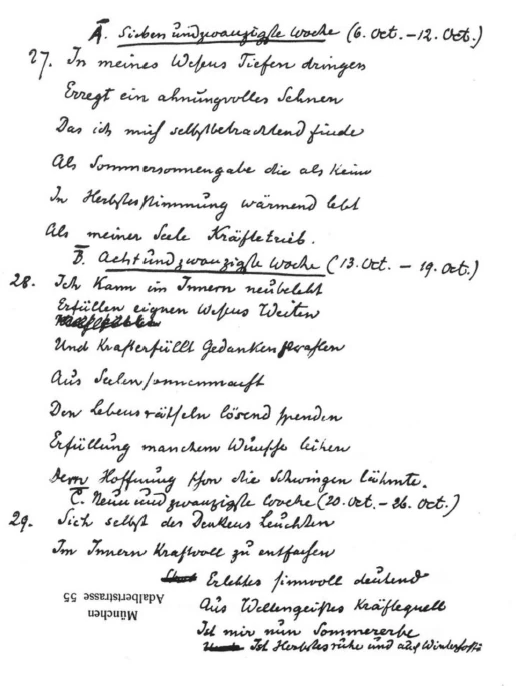 A. Siebenundzwanzigste Woche (6. Oct. – 12. Oct.)
27. In meines Wesens Tiefen dringen
Erregt ein ahnungsvolles Sehnen
Das ich mich selbstbetrachtend finde
Als Sommersonnengabe die als Keim
In Herbstesstimmung wärmend lebt
Als meiner Seele Kräftetrieb.
B. Achtundzwanzigste Woche (13. Oct. – 19. Oct.)
28. Ich kann im Innern neubelebt
Erfühlen eignen Wesens Weiten
Und krafterfüllt Gedankenstrahlen
Aus Seelensonnenmacht
Den Lebensrätseln lösend spenden
Erfüllung manchem Wunsche leihen
Dem Hoffnung schon die Schwingen lähmte.
C. Neunundzwanzigste Woche (20. Oct. – 26. Oct.)
29. Sich selbst des Denkens Leuchten
Im Innern kraftvoll zu entfachen
Erlebtes sinnvoll deutend
Aus Weltengeistes Kräftequell
Ist mir nun Sommererbe
Ist Herbstesruhe und auch
München
Adalbertstrasse 55